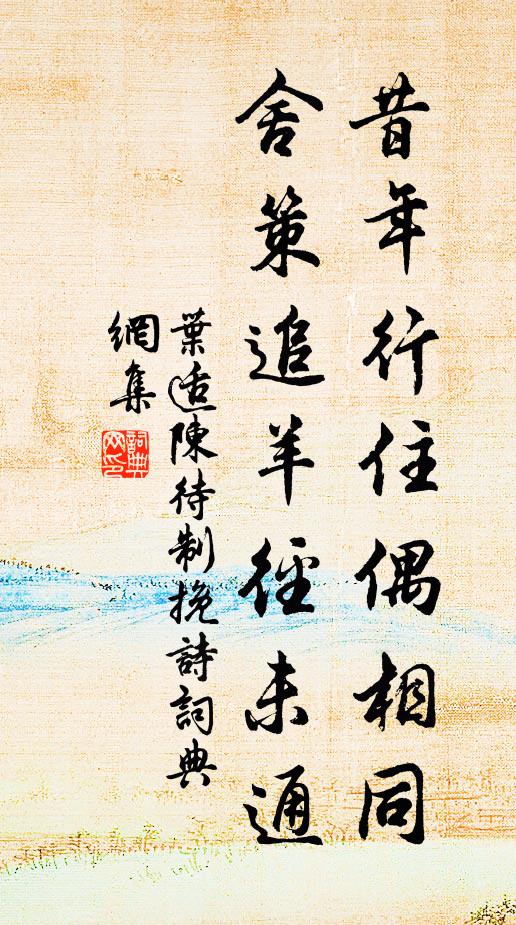 昔年行住偶相同
舍策追羊徑未通
葉适陳待制挽詩詞典
網集
詞典
网印